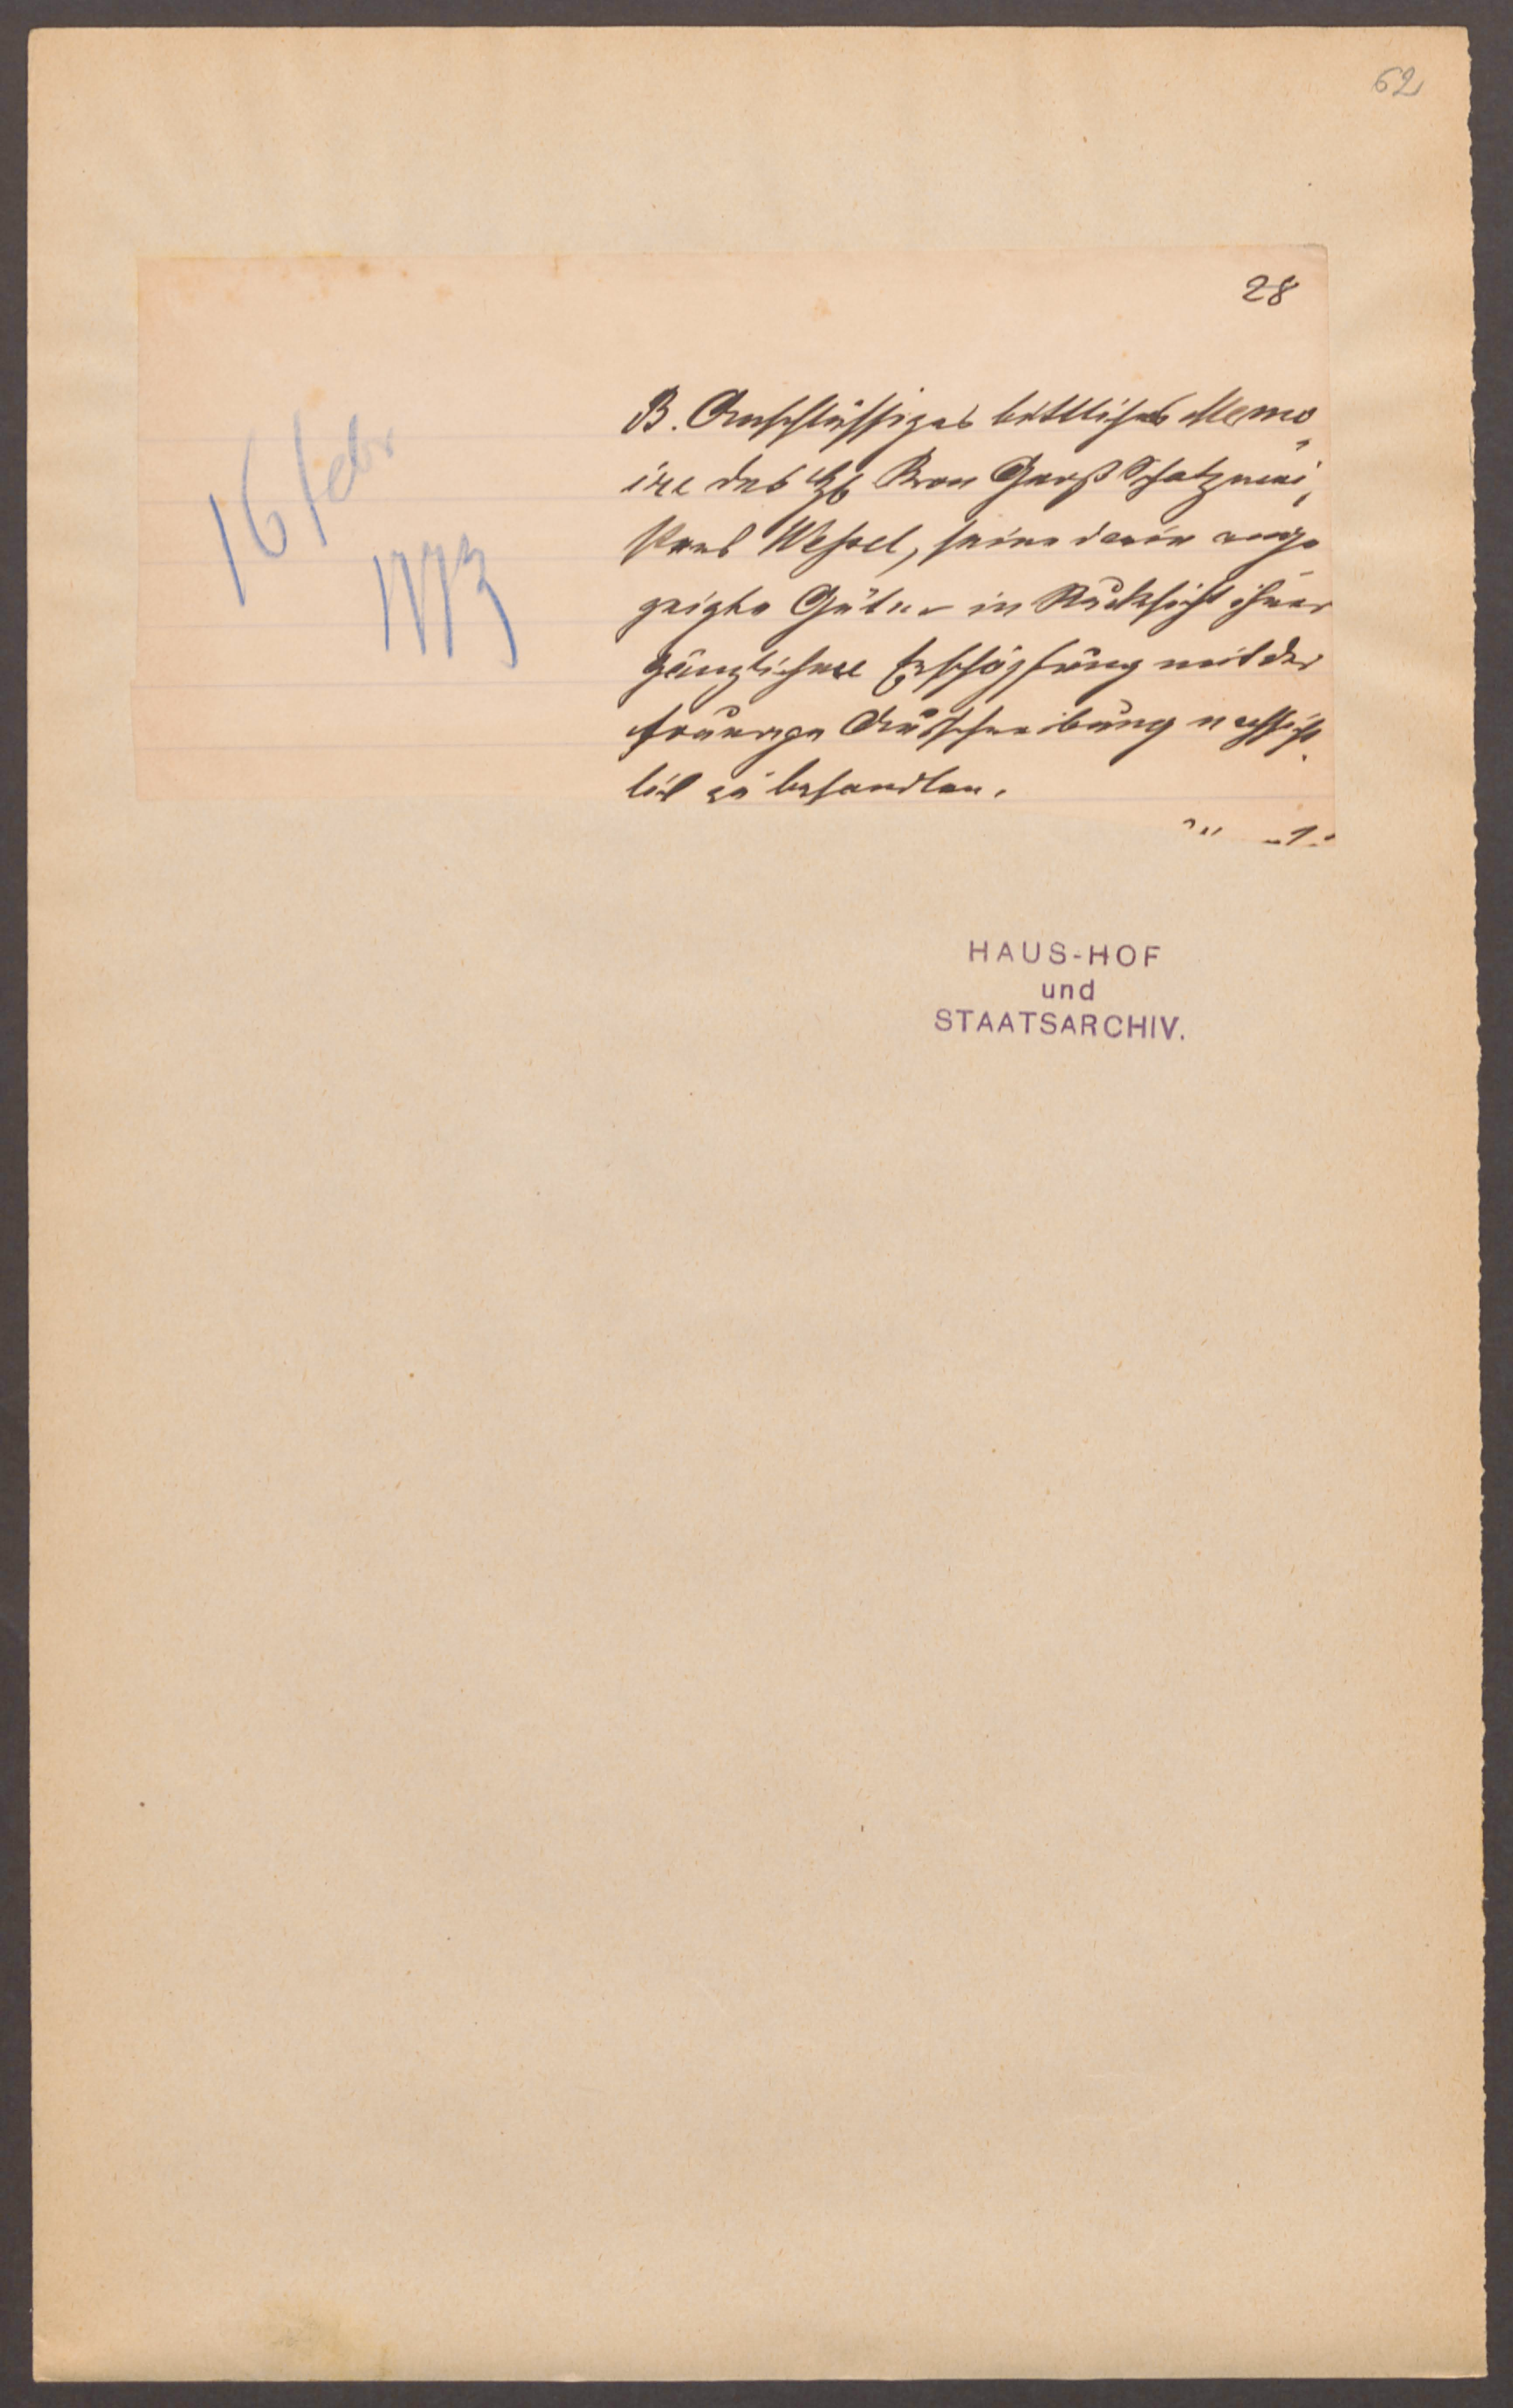 62
28
16 febr
1773
B. Anschlüssiges bittliches Memo
ire des H. Kron Groß Schatzmei
sters Wessel, seine darin ange
zeigte Güter in Rücksicht ihrer
gänzlichen Erschöpfung mit der
Ausschreibung nachsicht
lich zu behandlen.
HAUS-HOF
und
STAATSARCHIV.